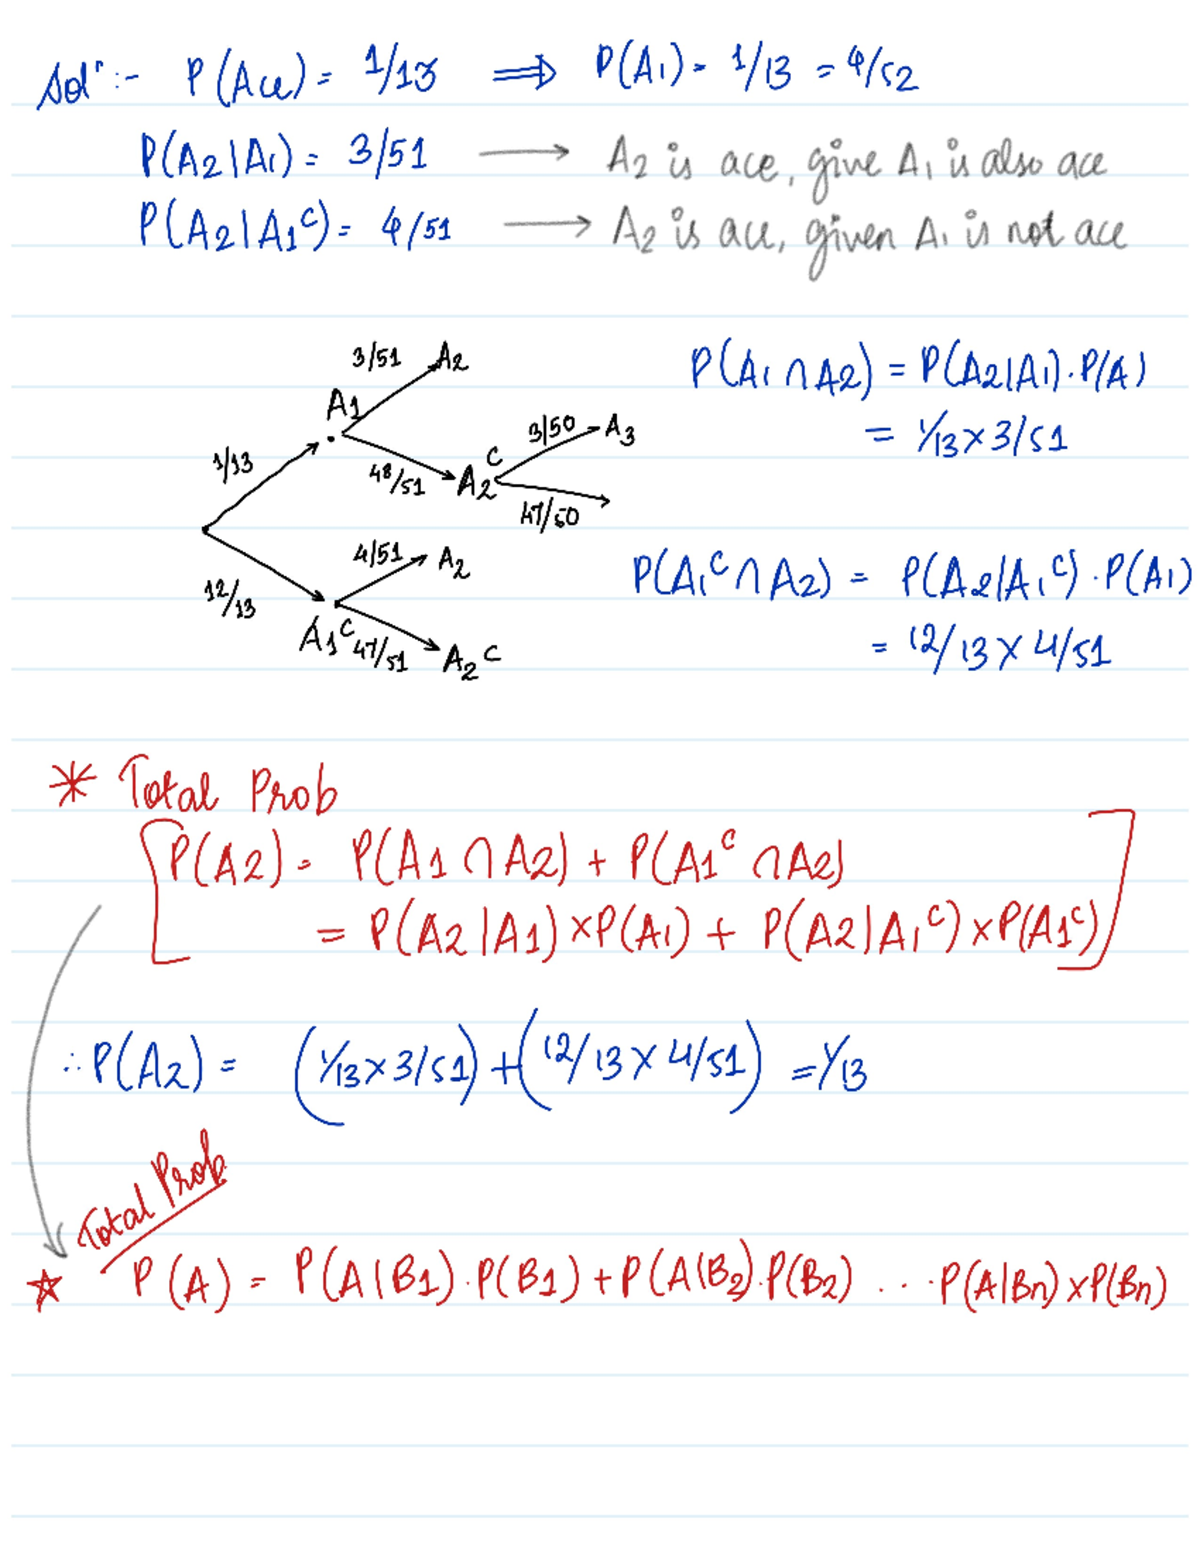 Solⁿ :- P(Ace) = 1/13 ⟹ P(A1) = 1/13 = 4/52
P(A2|A1) = 3/51 ⟶ A2 is ace, give A1 is also ace
P(A2|A1ᶜ) = 4/51 ⟶ A2 is ace, given A1 is not ace
3/51 A2
A1
3/50 A3
1/13
48/51 A2ᶜ
47/50
4/51 A2
12/13
A1ᶜ 47/51 A2ᶜ
P(A1 ∩ A2) = P(A2|A1) . P(A)
= 1/13 x 3/51
P(A1ᶜ ∩ A2) = P(A2|A1ᶜ) . P(A1)
= 12/13 x 4/51
* Total Prob
P(A2) = P(A1 ∩ A2) + P(A1ᶜ ∩ A2)
= P(A2|A1) x P(A1) + P(A2|A1ᶜ) x P(A1ᶜ)
∴ P(A2) = (1/13 x 3/51) + (12/13 x 4/51) = 1/13
Total Prob
☆ P(A) = P(A|B1) . P(B1) + P(A|B2) . P(B2) . . . P(A|Bn) x P(Bn)